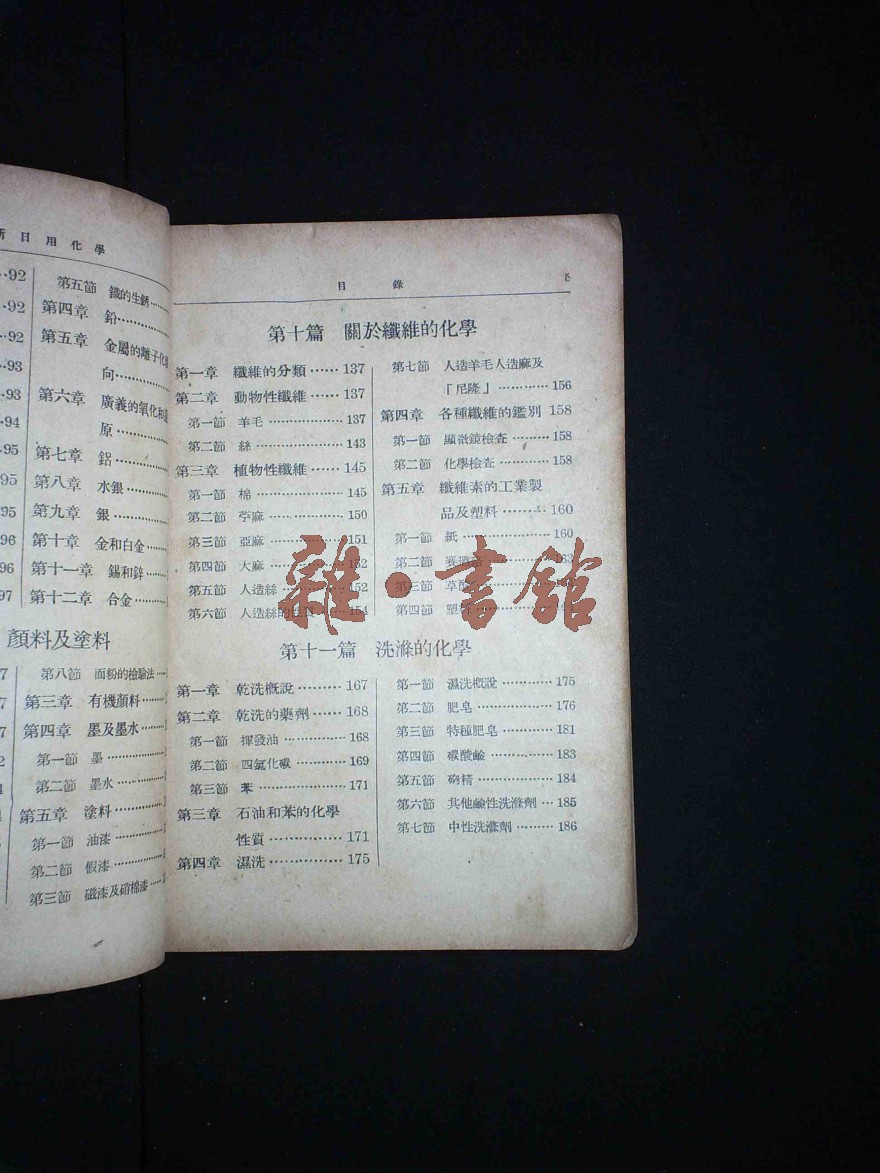 新日用化學
··92
··92
··92
··93
··93
··94
··95
95
95
96
96
97
第五節 鐵的生銹·········
第四章 鉛·········
第五章 金屬的離子化傾
向·········
第六章 廣義的氧化和還
原·········
第七章 鋁·········
第八章 水銀·········
第九章 銀·········
第十章 金和白金·········
第十一章 錫和鋅·········
第十二章 合金·········
顏料及塗料
第八節 面粉的檢驗法····
第三章 有機顏料·····
第四章 墨及墨水·····
第一節 墨·········
第二節 墨水·········
第五章 塗料·········
第一節 油漆·········
第二節 假漆·········
第三節 磁漆及硝棉漆·····
目錄
第十篇 關於纖維的化學
第一章 纖維的分類······137
第二章 動物性纖維······137
第一節 羊毛·········137
第二節 絲·········143
第三章 植物性纖維······145
第一節 棉·········145
第二節 苧麻·········150
第三節 亞麻·········151
第四節 大麻·········152
第五節 人造絲·········152
第六節 人造絲的性質······154
第七節 人造羊毛人造麻及
「尼隆」·········156
第四章 各種纖維的鑑別 158
第一節 顯微鏡檢查······158
第二節 化學檢查······158
第五章 纖維素的工業製
品及塑料······160
第一節 紙·········160
第二節
第三節 草酸
第四節 塑料
雜·書館
第十一篇 洗滌的化學
第一章 乾洗概說······167
第二章 乾洗的藥劑······168
第一節 揮發油·········168
第二節 四氯化碳······169
第三節 苯·········171
第三章 石油和苯的化學
性質·········171
第四章 濕洗·········175
第一節 濕洗概說······175
第二節 肥皂·········176
第三節 特種肥皂······181
第四節 碳酸鹼·········183
第五節 硇精·········184
第六節 其他鹼性洗滌劑···185
第七節 中性洗滌劑······186